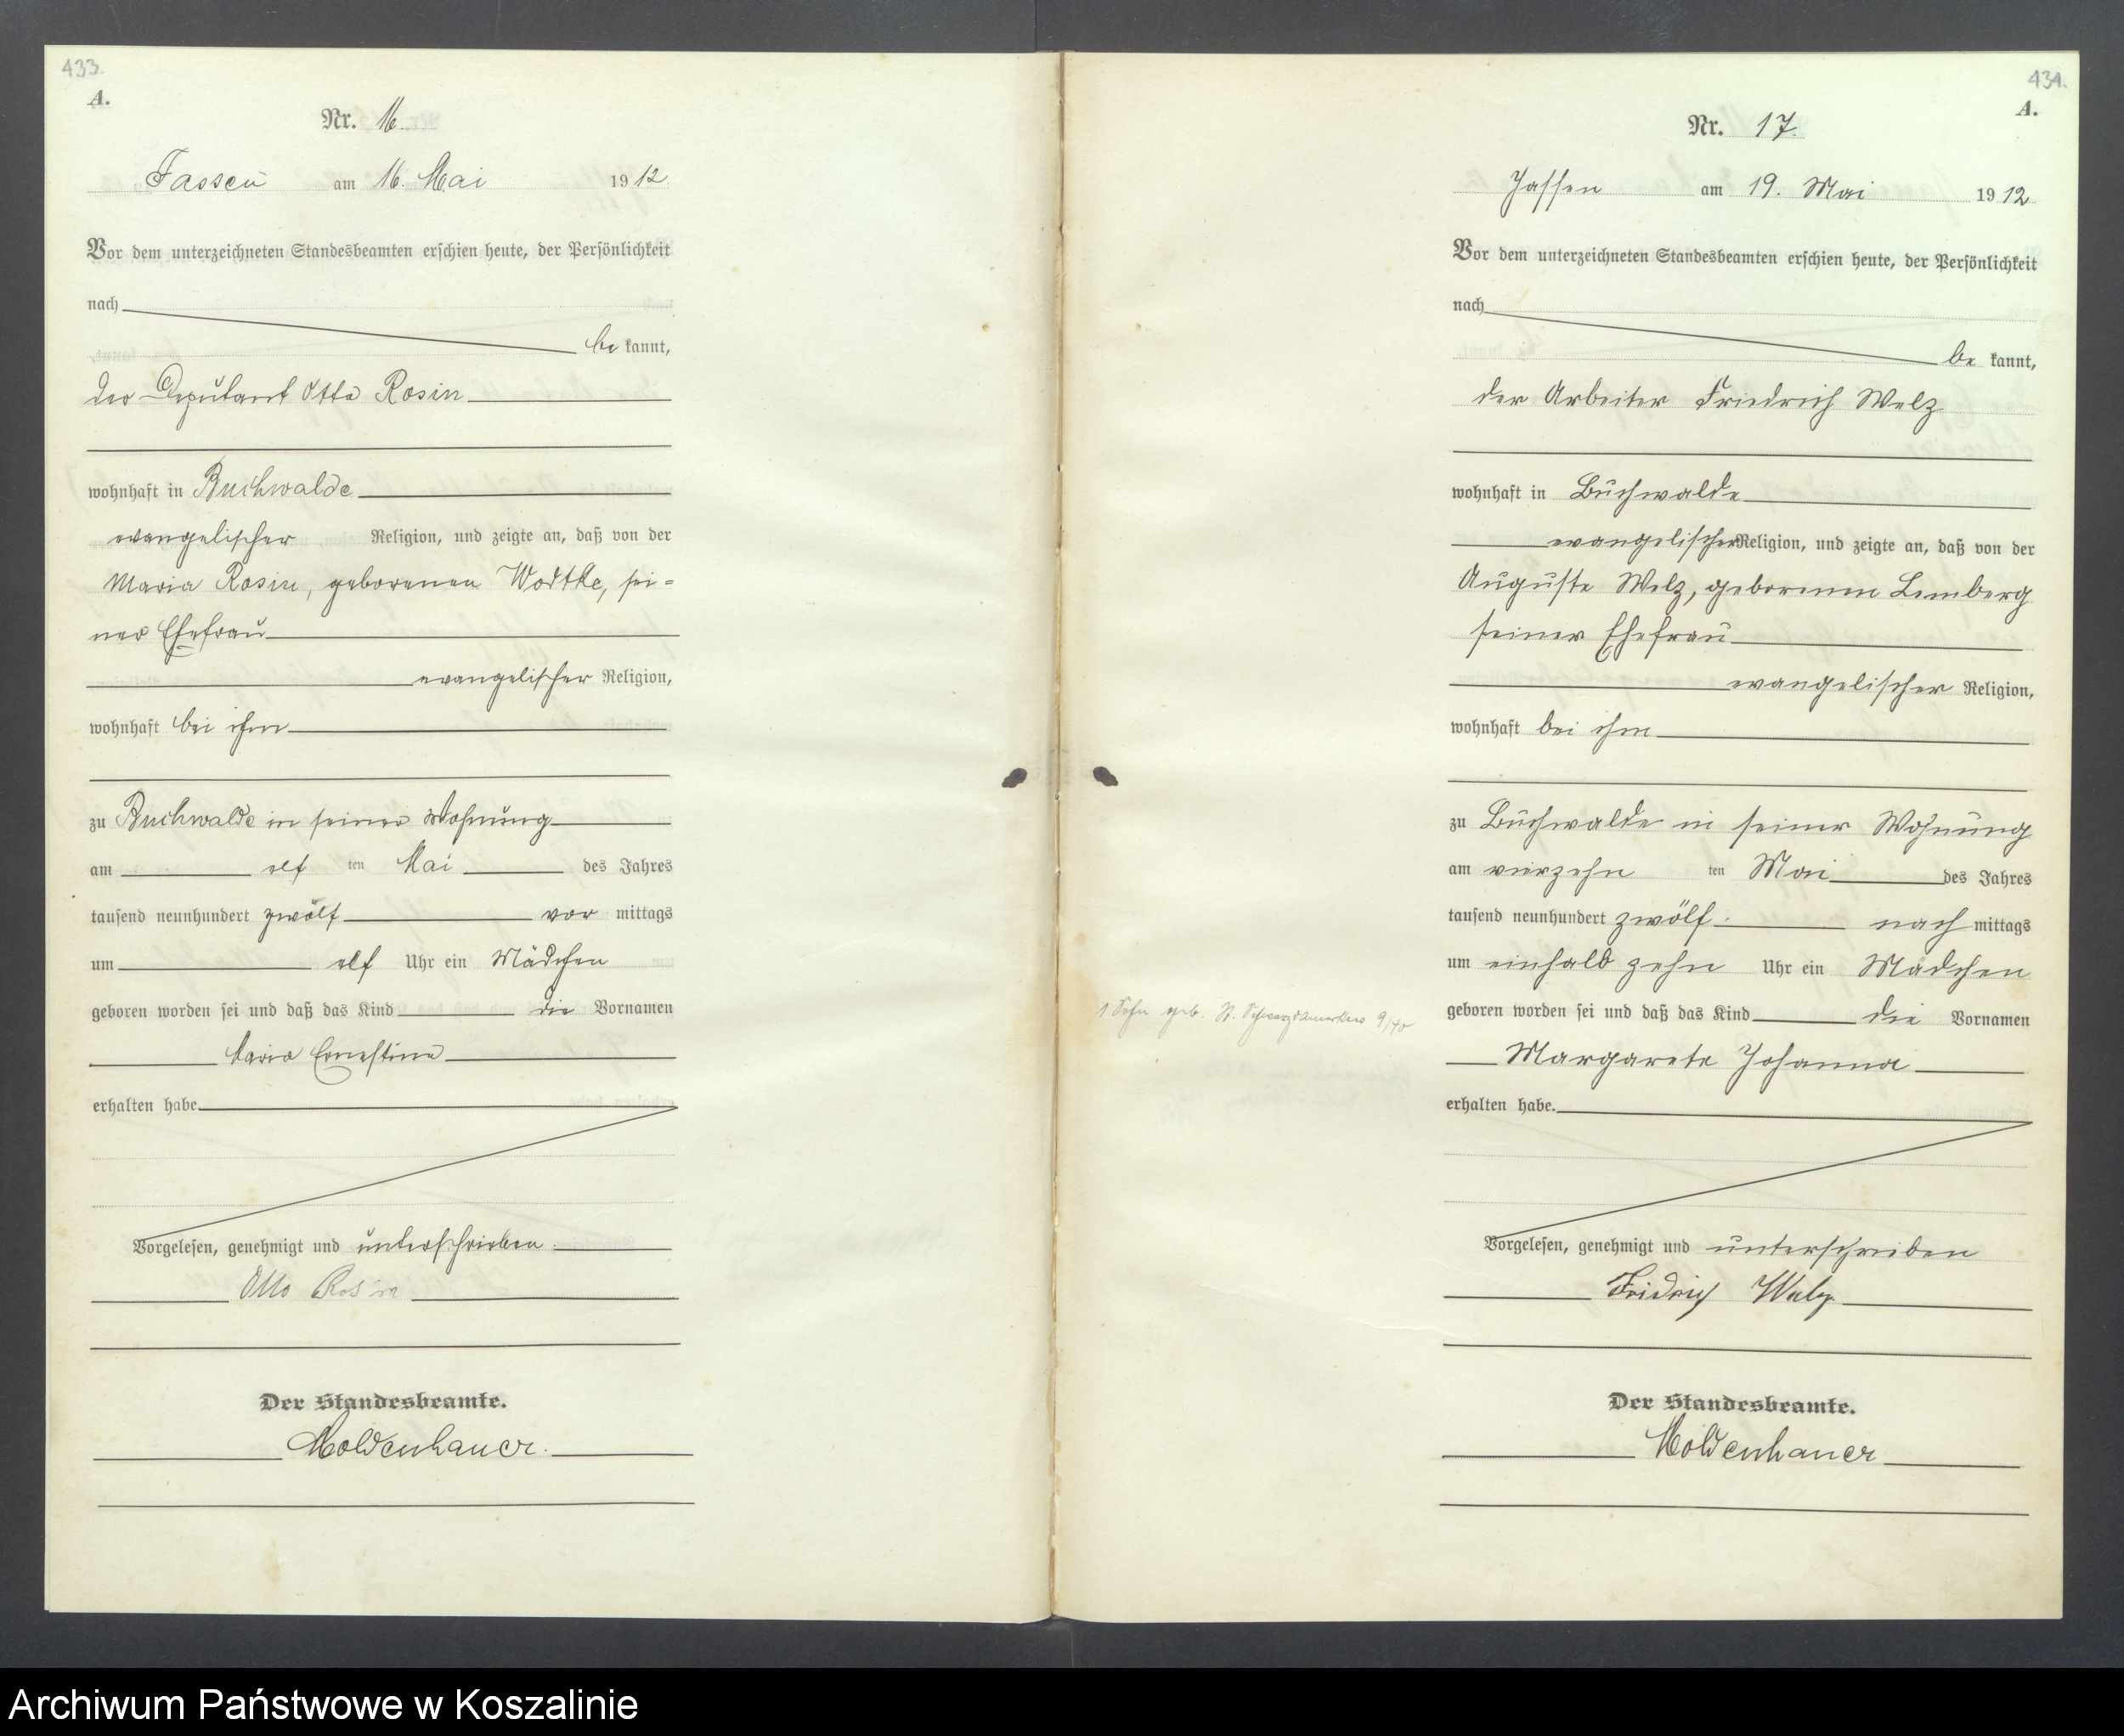 433.
A.
Nr. 16.
Jassen am 16. Mai 1912
Vor dem unterzeichneten Standesbeamten erschien heute, der Persönlichkeit
nach
be kannt,
der Deputant Otto Rosin
wohnhaft in Buchwalde
evangelischer Religion, und zeigte an, daß von der
Maria Rosin, geborenen Wodtke, sei-
ner Ehefrau
evangelischer Religion,
wohnhaft bei ihm
zu Buchwalde in seiner Wohnung
am elf ten Mai des Jahres
tausend neunhundert zwölf vor mittags
um elf Uhr ein Mädchen
geboren worden sei und daß das Kind die Vornamen
Maria Ernestine
erhalten habe
Vorgelesen, genehmigt und unterschrieben.
Otto Rosin
Der Standesbeamte.
Moldenhauer.
434.
A.
Nr. 17.
Jassen am 19. Mai 1912
Vor dem unterzeichneten Standesbeamten erschien heute, der Persönlichkeit
nach
be kannt,
der Arbeiter Friedrich Welz
wohnhaft in Buchwalde
evangelischer Religion, und zeigte an, daß von der
Auguste Welz, geborenen Lemberg
seiner Ehefrau
evangelischer Religion,
wohnhaft bei ihm
zu Buchwalde in seiner Wohnung
am vierzehn ten Mai des Jahres
tausend neunhundert zwölf nach mittags
um einhalb zehn Uhr ein Mädchen
geboren worden sei und daß das Kind die Vornamen
1 Sohn geb. St. 9/40
Margarete Johanna
erhalten habe.
Vorgelesen, genehmigt und unterschrieben
Fridrich Welz
Der Standesbeamte.
Moldenhauer
Archiwum Państwowe w Koszalinie